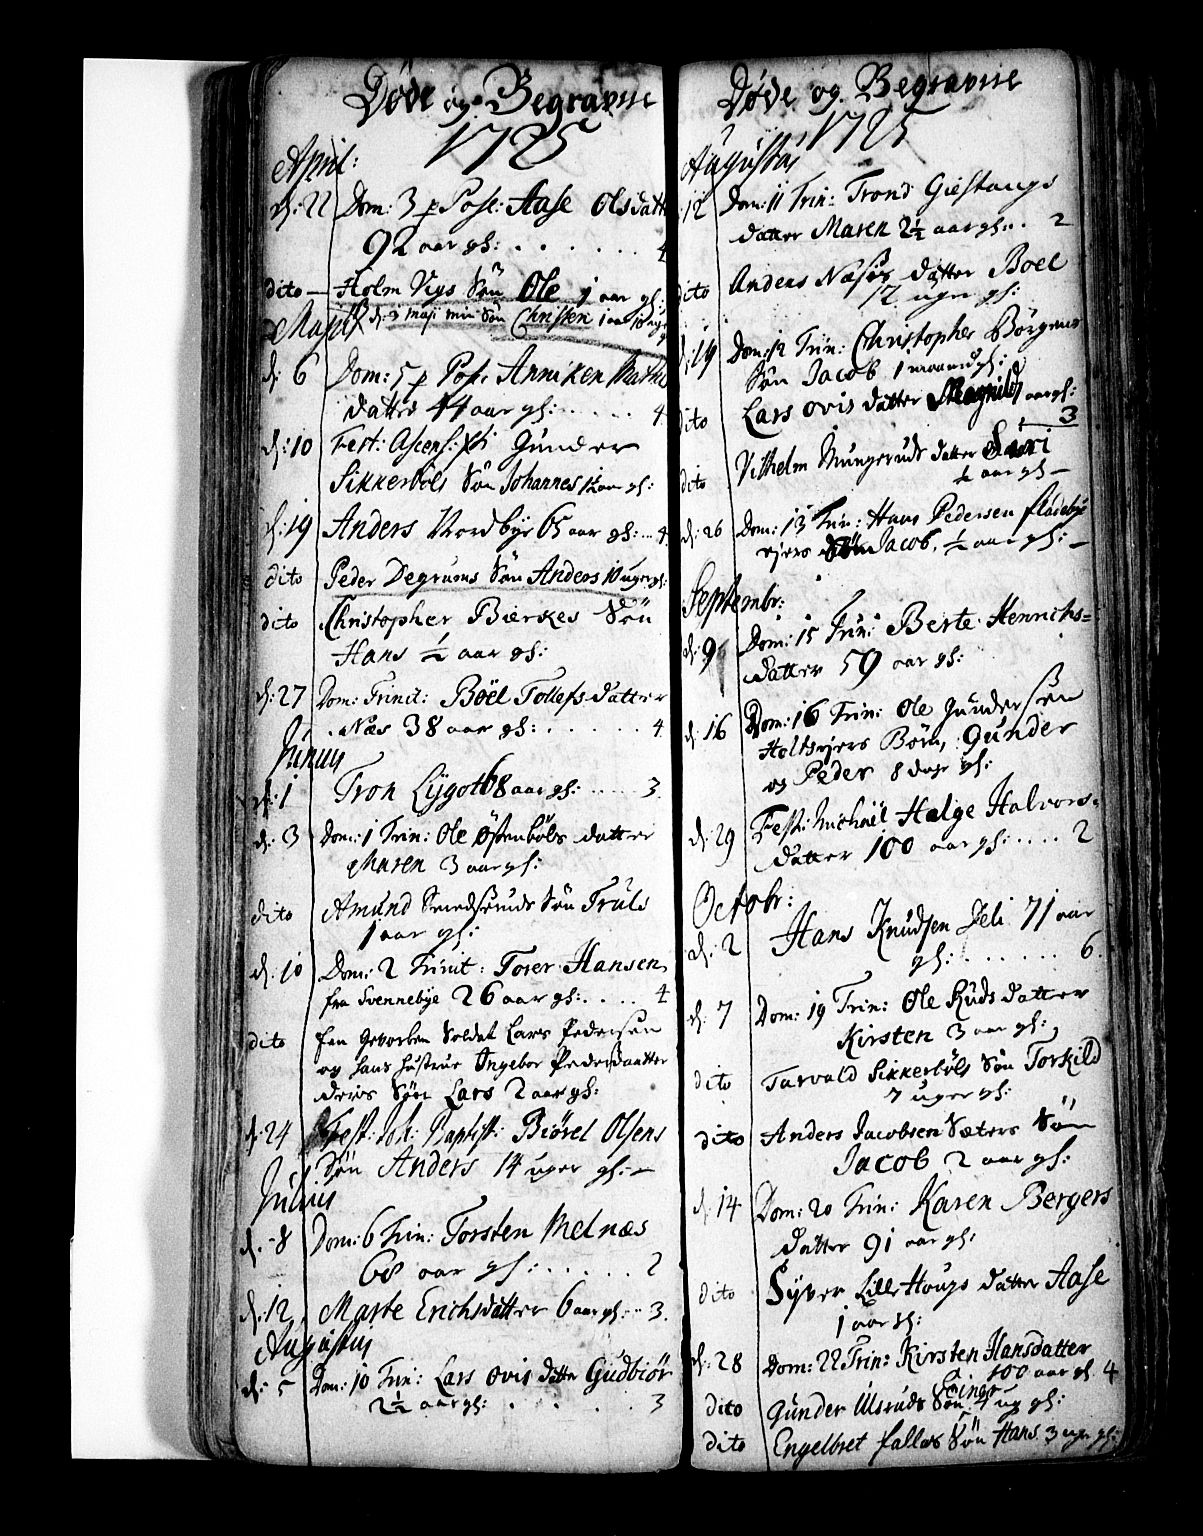 Døde og Begravne
1725
April:
d: 22 Dom: 3 p Pasc: Aase Olsdatt
92 aar gl: . . . . . . 4
dito — Holm Vigs Søn Ole 1 aar gl:
Majus d: 3 maji min Søn Christen 1 aar 18 uger
d: 6 Dom: 5 p Pas: Anniken Mathi
datter 44 aar gl: . . . . . 4
d: 10 Fest: Ascens: Xti Gunder
Sikkerbøls Søn Johannes 1½ aar gl:
d: 19 Anders Nordbye 65 aar gl: .. 4
dito Peder Degrums Søn Anders 10 uger gl:
dito Christopher Bierkes Søn
Hans ½ aar gl:
d: 27 Dom: Trinit: Böel Tollefsdatter
Næs 38 aar gl: . . . . . . 4
Junius
d: 1 Tron Lÿgot 68 aar gl: . . . . 3.
d: 3 Dom: 1 Trin: Ole Østenbøls datter
Maren 3 aar gl:
dito Amund Smedsruds Søn Truls
1 aar gl:
d: 10 Dom: 2 Trinit: Torer Hansen
fra Svennebye 26 aar gl: . . . . 4
dito Een Geworben Soldat Lars Pedersen
og hans hustrue Ingebor Pedersdaatter
deris Søn Lars 2 aar gl:
d: 24 Fest: Joh: Baptist: Biørel Olsens
Søn Anders 14 uger gl: —
Julius
d: 8 Dom: 6 Trin: Torsten Melnæs
68 aar gl: . . . . . 2
d: 12, Marte Erichsdatter 6 aar gl: .. 3.
Augustus
d: 5 Dom: 10 Trin: Lars Ovis datter Gudbiør
2½ aar gl: . . . . . . 3
Døde og Begravne
1725
Augustus
12 Dom: 11 Trin: Trond Giestangs
datter Maren 2½ aar gl: . . 2
dito Anders Næsøs datter Boel
12 uger gl:
d: 19 Dom: 12 Trin: Christopher Børgens
Søn Jacob 1 maaned gl:
dito Lars Ovis datter Magnild 1 aar gl:
3
dito Vilhelm Mungeruds datter Siri
½ aar gl —
d: 26 Dom: 13 Trin: Hans Pedersen fladebye
ejers Søn Jacob, ½ aar gl: —
Septembr:
d: 9 Dom: 15 Trin: Berte Henrichs=
datter 59 aar gl:
d: 16 Dom: 16 Trin: Ole Gundersen
Holtsejers Børn, Gunder
og Peder 8 dage gl:
d: 29 Fest: Michäel Helge Halvors=
datter 100 aar gl: . . . . 2
Octobr:
d: 2 Hans Knudsen Jeli 71 aar
gl: . . . . . . . 6.
d: 7 Dom: 19 Trin: Ole Ruds datter
Kirsten 3 aar gl:
dito Tarvald Sikkerbøls Søn Torkild
7 uger gl:
dito Anders Jacobsen Sæters Søn
Jacob 2 aar gl:
d: 14 Dom: 20 Trin: Karen Bergers
datter 91 aar gl:
dito Syver Lille Hougs datter Aase
1 aar gl:
d: 28 Dom: 22 Trin: Kirsten Hansdatter
100 aar gl. 4
dito Gunder Ulsruds Søn Einer 4 ug gl:
dito Engelbret fallas Søn Hans 3 uger gl: